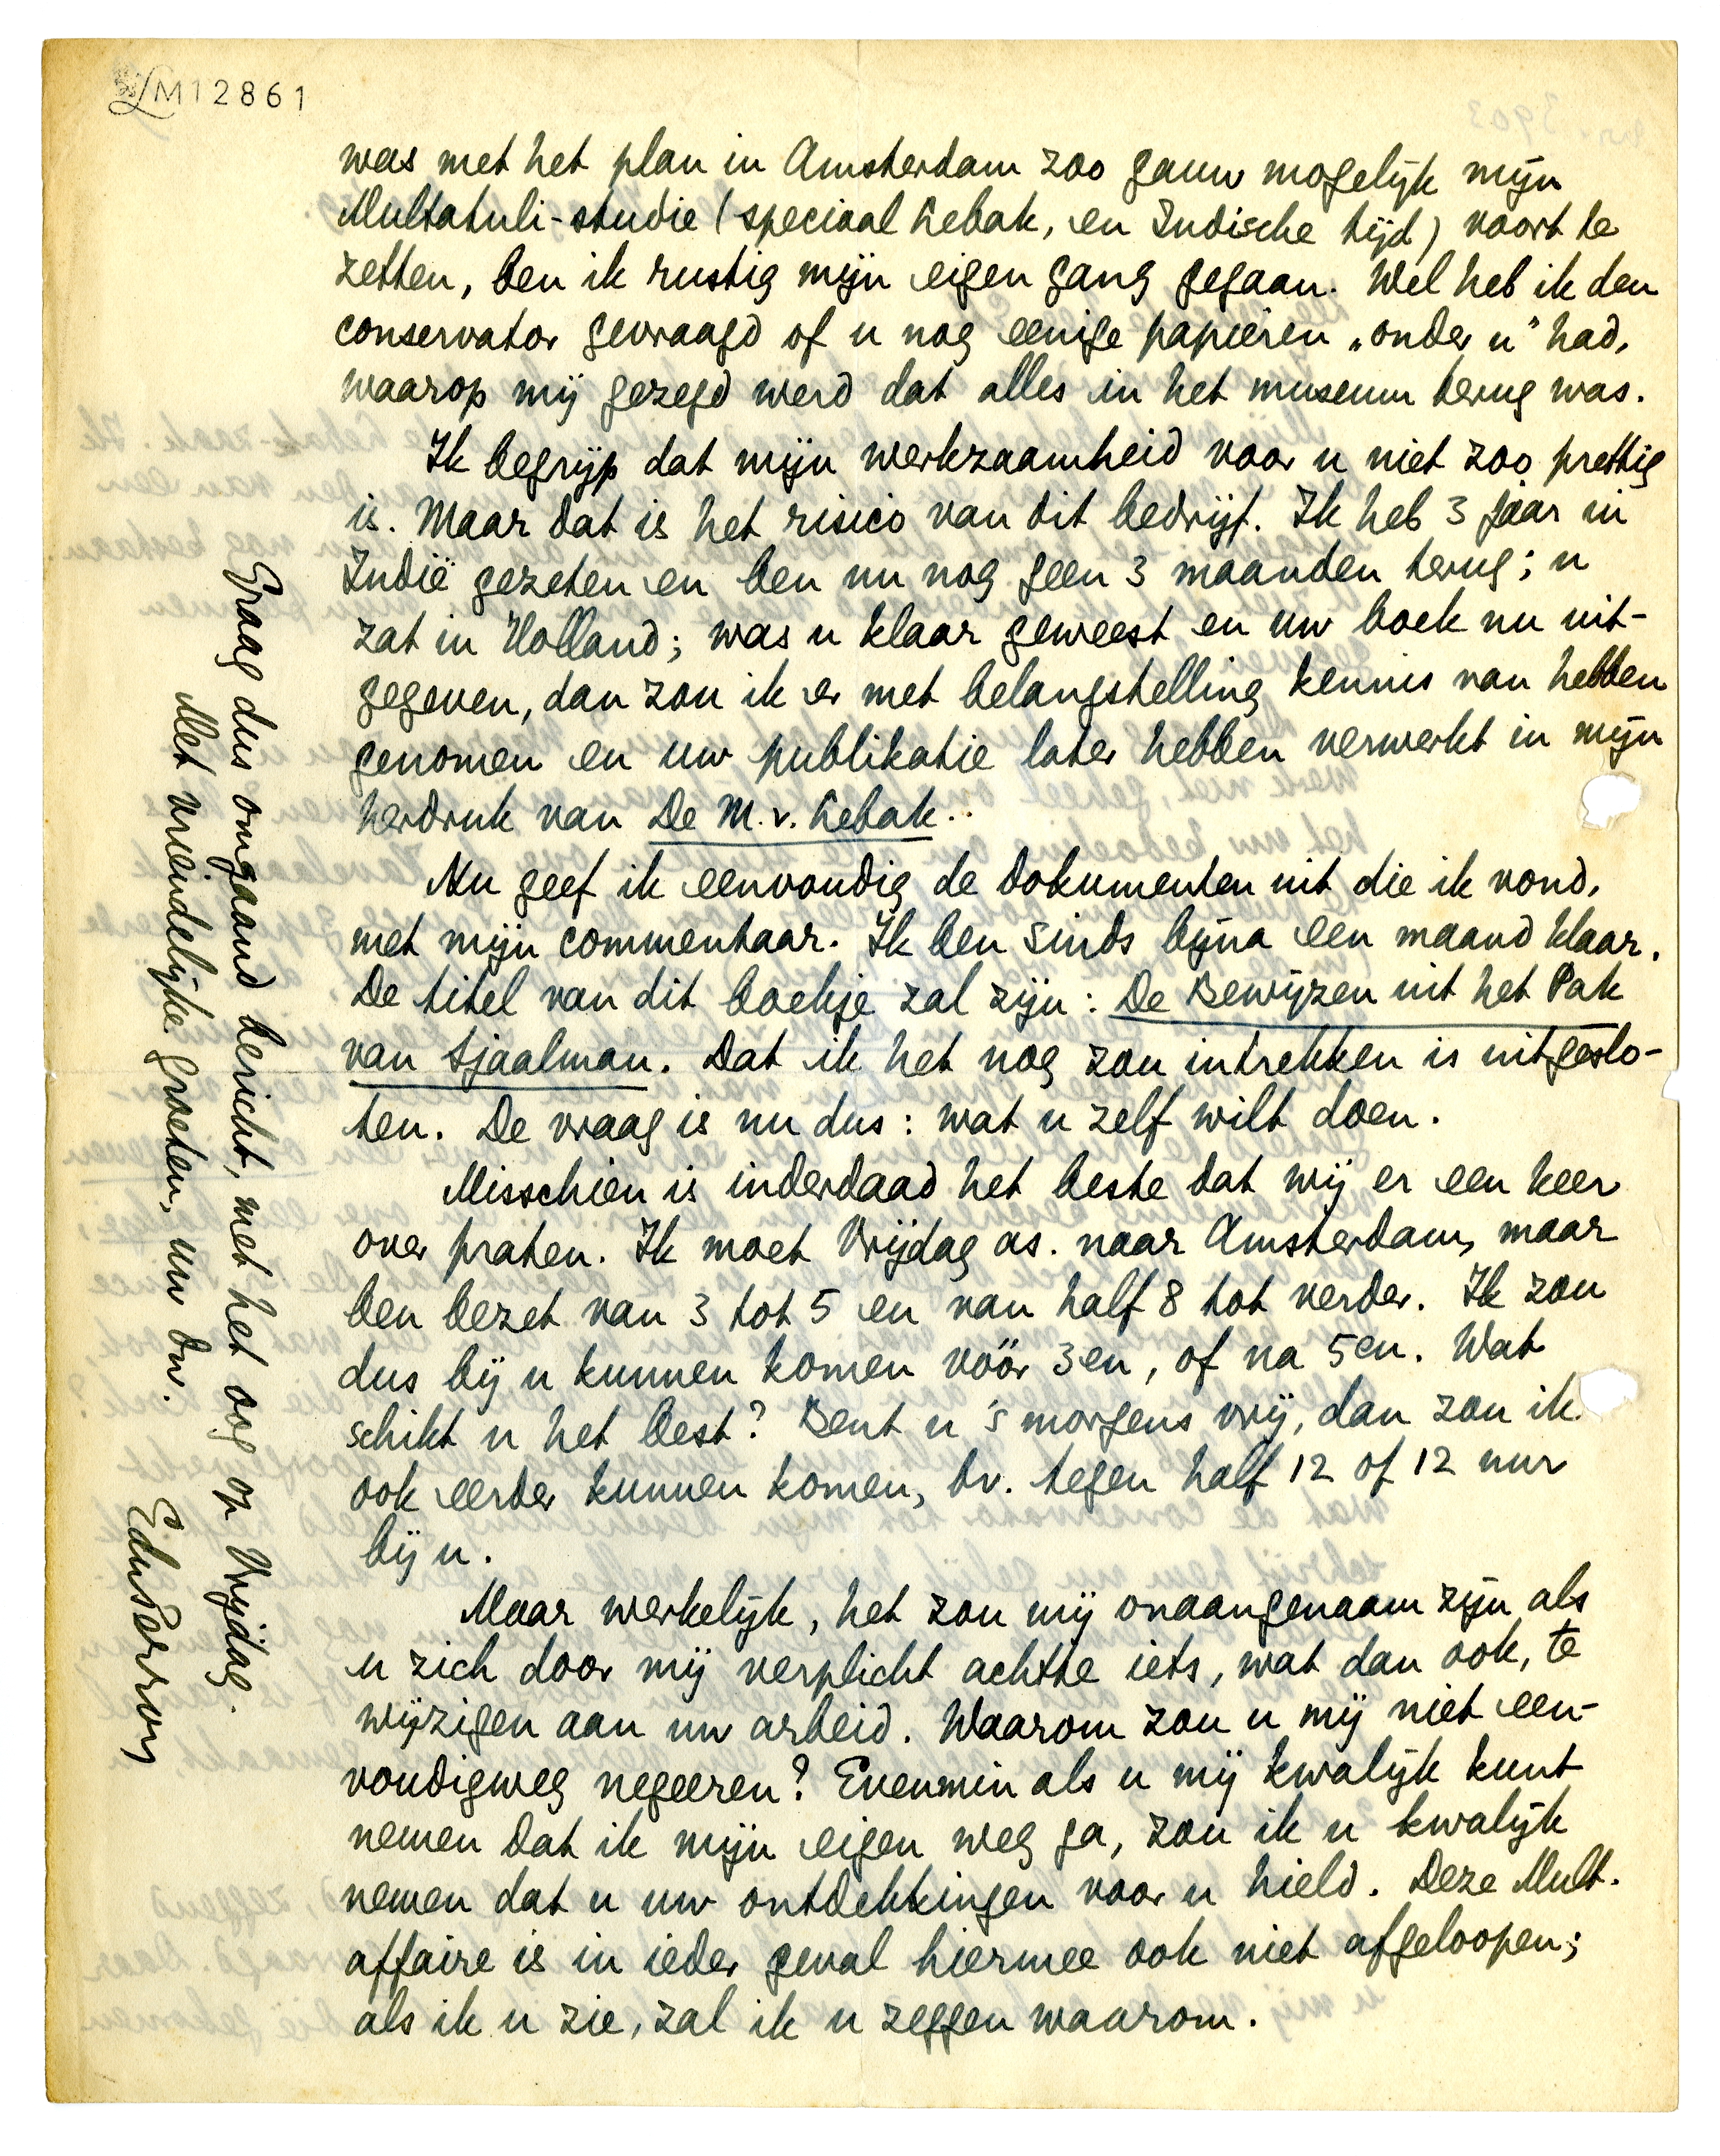 LM12861
was met het plan in Amsterdam zoo gauw mogelijk mijn
Multatuli-studie (speciaal Lebak, en Indische tijd) voort te
zetten, ben ik rustig mijn eigen gang gegaan. Wel heb ik den
conservator gevraagd of u nog eenige papieren „onder u” had,
waarop mij gezegd werd dat alles in het museum terug was.
Ik begrijp dat mijn werkzaamheid voor u niet zoo prettig
is. Maar dat is het risico van dit bedrijf. Ik heb 3 jaar in
Indië gezeten en ben nu nog geen 3 maanden terug; u
zat in Holland; was u klaar geweest en uw boek nu uit-
gegeven, dan zou ik er met belangstelling kennis van hebben
genomen en uw publikatie later hebben verwerkt in mijn
herdruk van De M. v. Lebak.
Nu geef ik eenvoudig de dokumenten uit die ik vond,
met mijn commentaar. Ik ben sinds bijna een maand klaar.
De titel van dit boekje zal zijn: De Bewijzen uit het Pak
van Sjaalman. Dat ik het nog zou intrekken is uitgeslo-
ten. De vraag is nu dus: wat u zelf wilt doen.
Misschien is inderdaad het beste dat wij er een keer
over praten. Ik moet Vrijdag as. naar Amsterdam, maar
ben bezet van 3 tot 5 en van half 8 tot verder. Ik zou
dus bij u kunnen komen vóór 3en, of na 5en. Wat
schikt u het best? Bent u 's morgens vrij, dan zou ik
ook eerder kunnen komen, bv. tegen half 12 of 12 uur
bij u.
Maar werkelijk, het zou mij onaangenaam zijn als
u zich door mij verplicht achtte iets, wat dan ook, te
wijzigen aan uw arbeid. Waarom zou u mij niet een-
voudigweg negeeren? Evenmin als u mij kwalijk kunt
nemen dat ik mijn eigen weg ga, zou ik u kwalijk
nemen dat u uw ontdekkingen voor u hield. Deze Mult.
affaire is in ieder geval hiermee ook niet afgeloopen;
als ik u zie, zal ik u zeggen waarom.
Graag dus omgaand bericht, met het oog op Vrijdag.
Met vriendelijke groeten, uw dw.
EduPerron